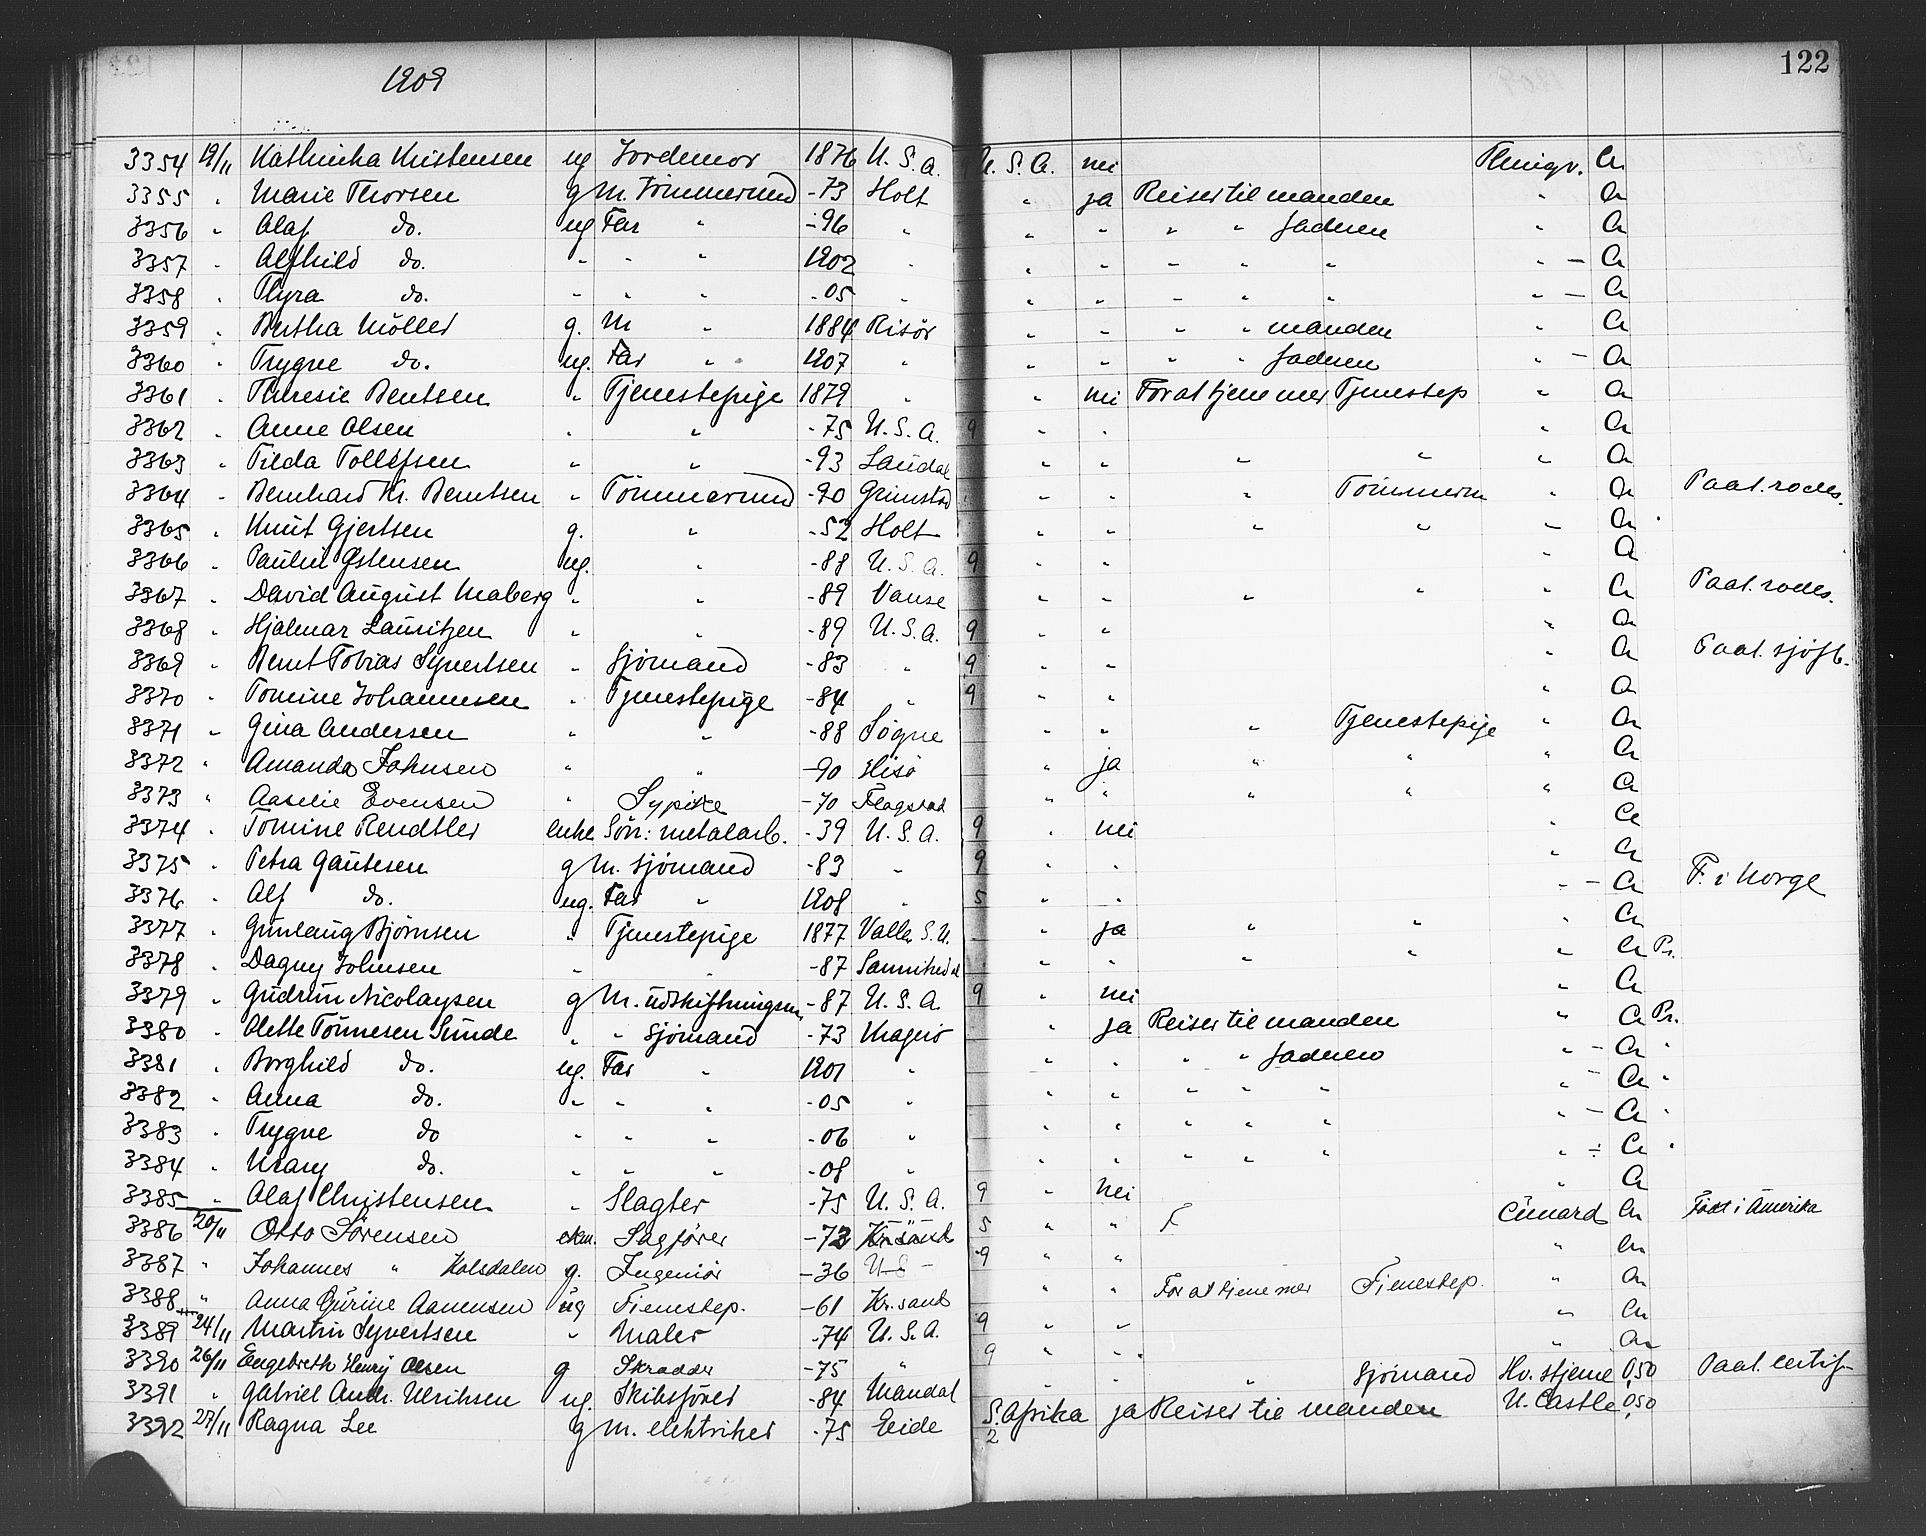 1909
122
3354 19/11 Kathinka Kristensen ug Jordemor 1876 U.S.A. U.S.A. nei Thingv. A
3355 " Marie Thorsen g M. Tömmermand -73 Holt " ja Reiser til manden " A
3356 " Olaf do. ug Far " -96 " " " " " faderen " A
3357 " Alfhild do. " " " 1902 " " " " " " " - A
3358 " Thyra do. " " " -05 " " " " " " " - A
3359 " Bertha Möller g. M " 1884 Risör " " " " manden " A
3360 " Trygve do. ug. Far " 1907 " " " " " faderen " - A
3361 " Theresie Bentsen " Tjenestepige 1879 " " nei For at tjene mer Tjenestep " A
3362 " Anne Olsen " " -75 U.S.A. 9 " " " A
3363 " Tilda Tollefsen " " -93 Laudal " " " " " A
3364 " Bernhard Kr. Berntsen " Tömmermand -90 Grimstad " " " Tömmerm " A Paat. rodes.
3365 " Knut Gjertsen g. " -52 Holt " " " " " A "
3366 " Paulin Østensen ug. " -88 U.S.A. 9 " " " A
3367 " David August Maberg " " -89 Vanse " " " " " A Paat. rodes.
3368 " Hjalmar Lauritzen " " -89 U.S.A. 9 " " " A
3369 " Bernt Tobias Syvertsen " Sjömand -83 " 9 " " " A Paat. sjöfb.
3370 " Tomine Johannesen " Tjenestepige -84 " 9 " " " A
3371 " Gina Andersen " " -88 Søgne " " " Tjenestepige " A
3372 " Amanda Johnsen " " -90 Hisö " ja " " " A
3373 " Aaselie Evensen " Sypike -70 Flagstad " " " " " A
3374 " Tomine Rendtler enke Sön: metalarb. -39 U.S.A. 9 " nei " A
3375 " Petra Gautesen g M. sjömand -83 " 9 " " " A
3376 " Alf do. ug. Far " 1908 " 5 " " " - A F. i Norge
3377 " Gunlaug Bjørnsen " Tjenestepige 1877 Valle, S. " ja " " " A
3378 " Dagny Johnsen " " -87 Sannikedal " " " " " A Pr.
3379 " Gudrun Nicolaysen g M. udskiftningsm. -87 U.S.A 9 " nei " A
3380 " Olette Tönnesen Sunde " " sjömand -73 Kragerö " ja Reiser til manden " A Pr.
3381 " Borghild do. ug. Far " 1901 " " " " " faderen " - A "
3382 " Anna do. " " " -05 " " " " " " " - A "
3383 " Trygve do " " " -06 " " " " " " " - A "
3384 " do. " " " -08 " " " " " " " - A "
3385 " Olaf Christensen " Slagter -75 U.S.A. 9 " nei " A
3386 20/11 Otto Sörensen ekm. Sagförer -73 Kr.sand 5 " " F Cunard A Født i Amerika
3387 " Johannes " Holsdalen g. Ingeniör -36 U S - 9 " " " A
3388 " Anna Gurine Aanensen ug Tjenestep. -61 Kr.sand " " For at tjene mer Tjenestep. " A
3389 24/11 Martin Syvertsen " Maler -74 U.S.A. 9 " " " A
3390 26/11 Engebreth Henry Olsen g Skrædder -75 " 9 " " " A
3391 " Gabriel Andr. Ulriksen ug. Skibsförer -84 Mandal " " " Sjömand Hv. stjerne 0,50 Paat. certif
3392 27/11 Ragna Lee g M. elektriker -75 Eide S. Afrika ja Reiser til manden U. Castle 0,50
2